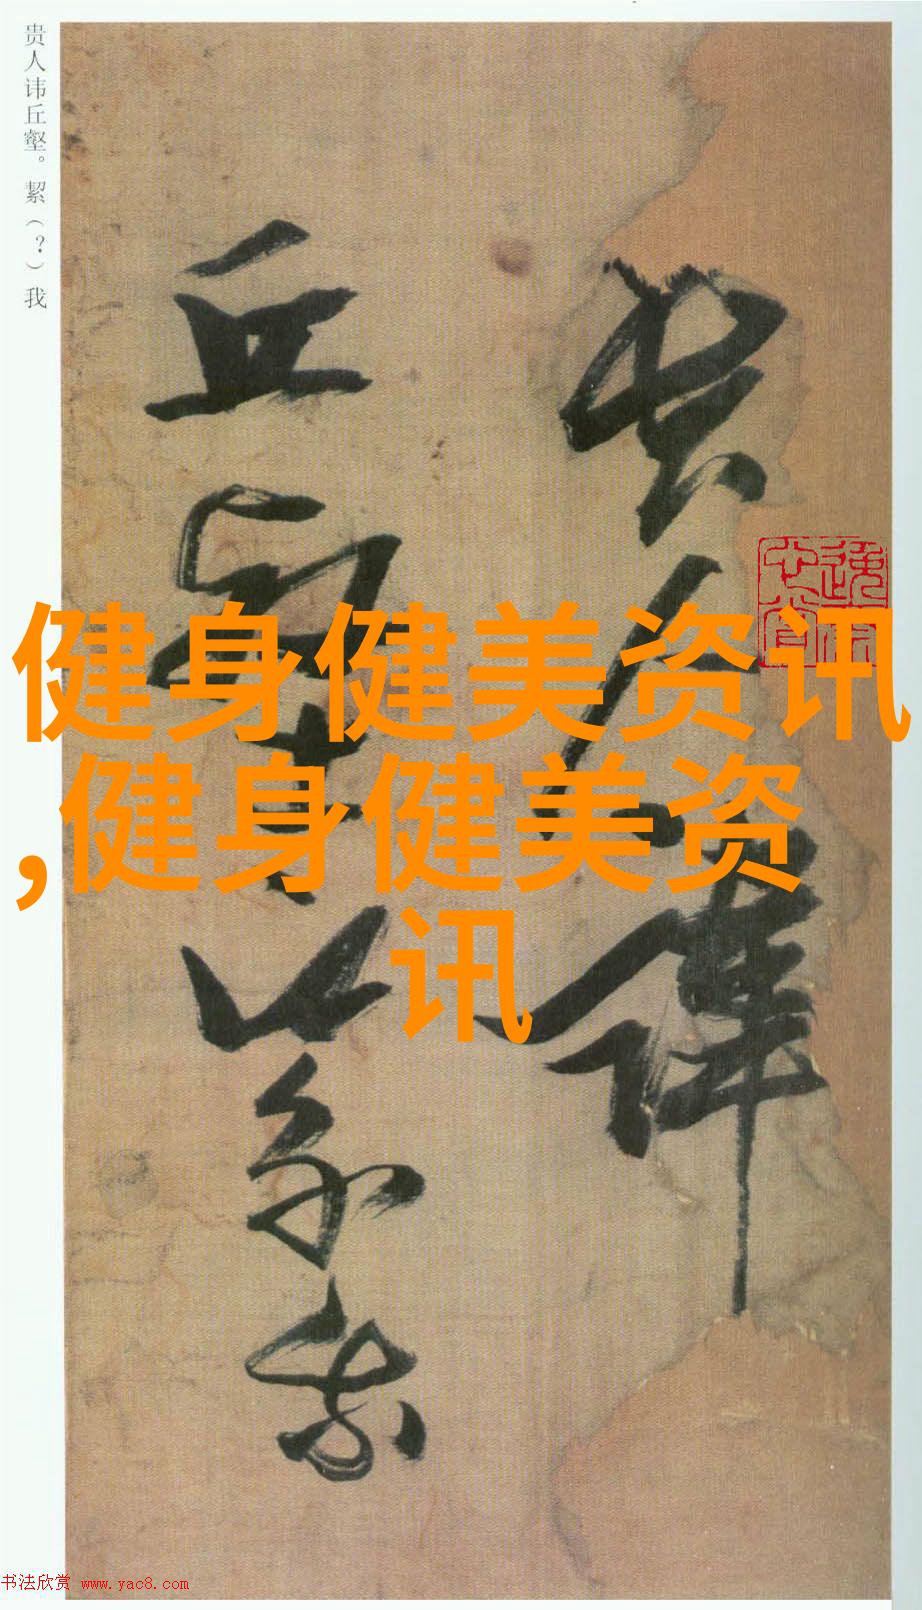 贵人讳丘壑。絜（？）我
贵人讳
丘壑
絜我
健身健美资讯
,健身健美资
讯
书法欣赏 www.yac8.com